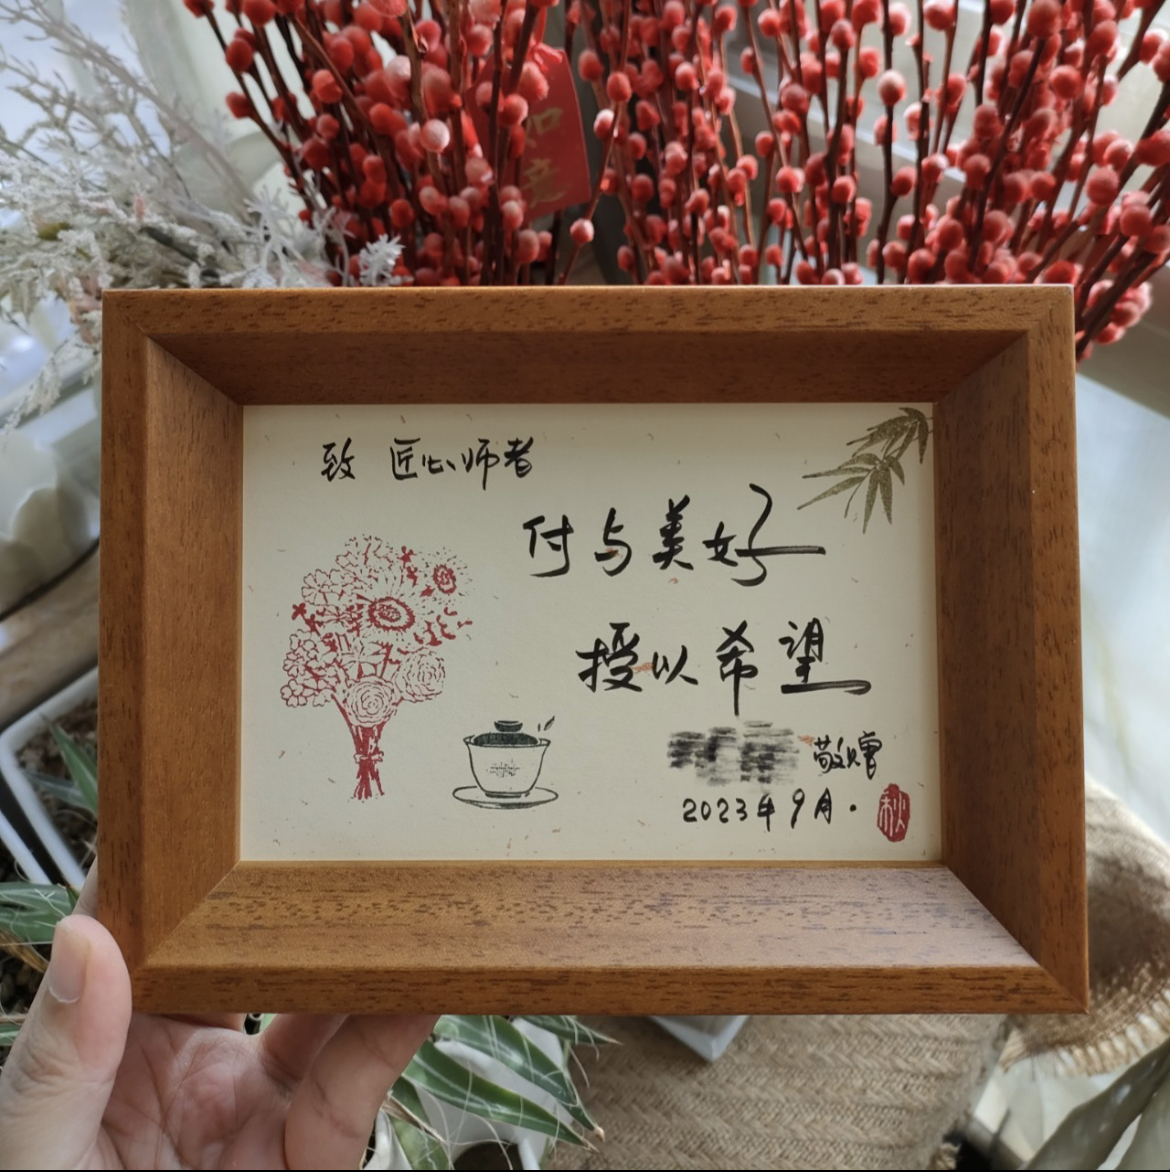 如意
致 匠心师者
付与美好
授以希望
敬赠
2023年9月·
秋